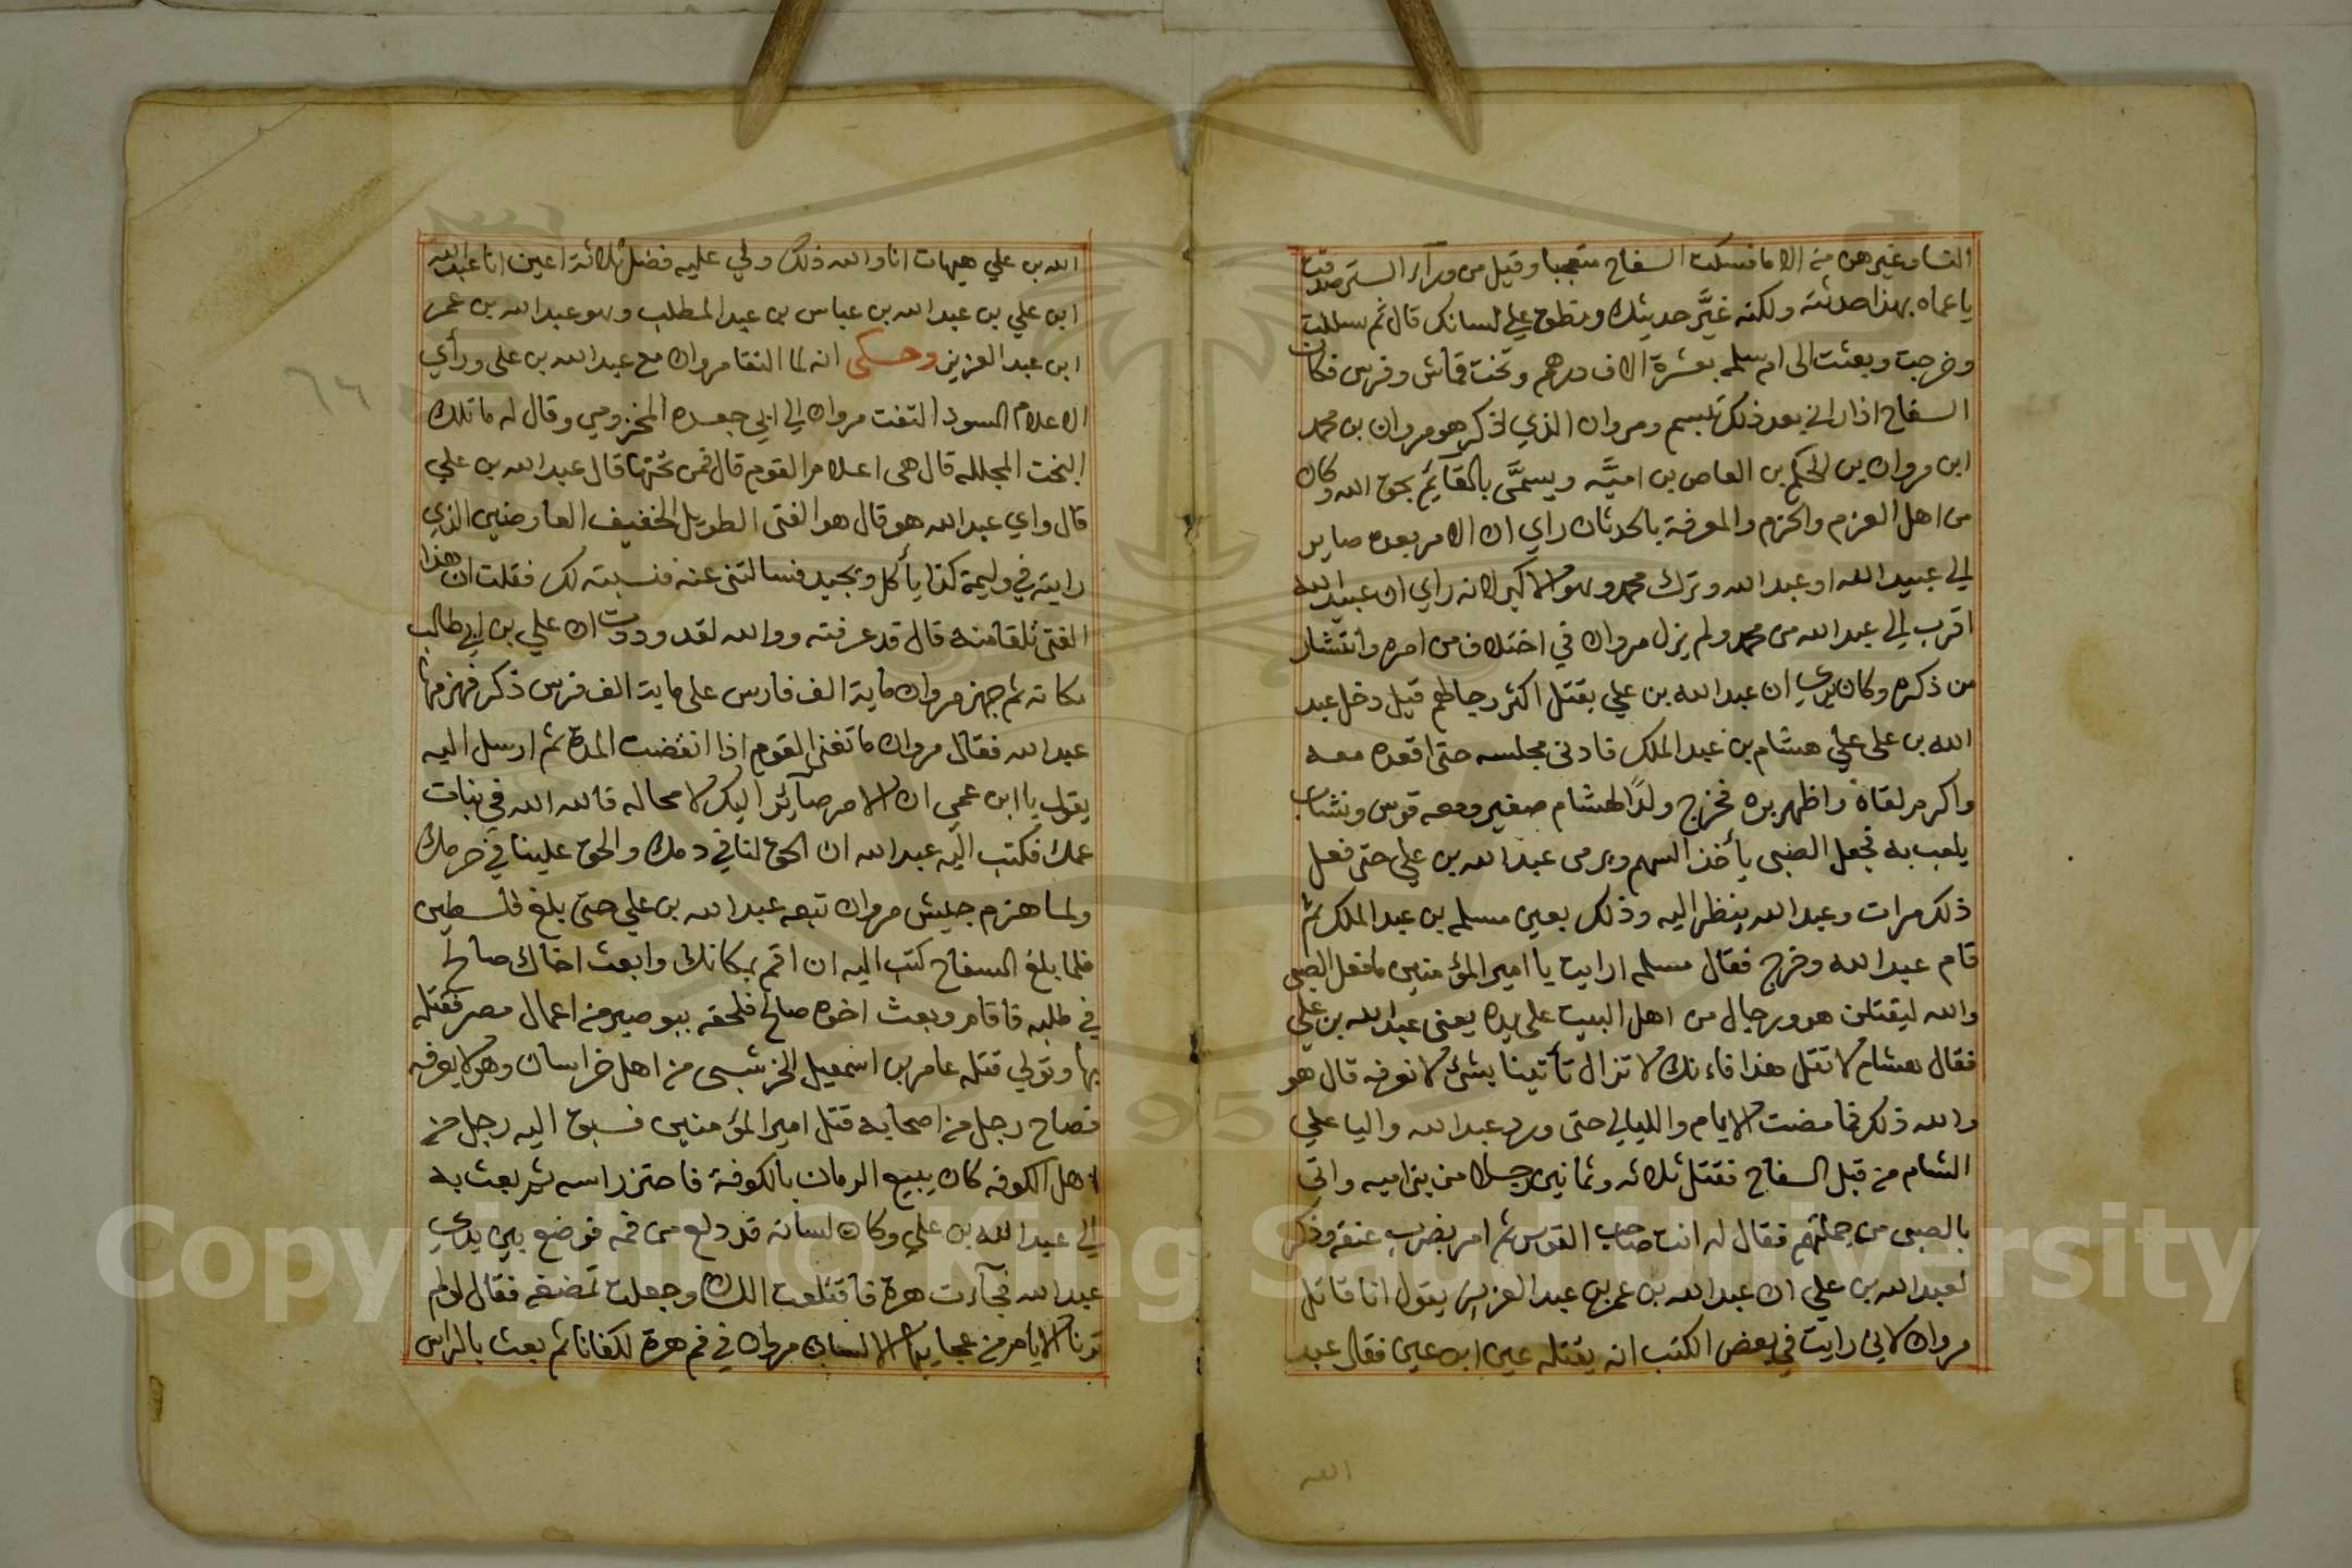 النساء وغيرهن من الاما فسكت السفاح متعجبا وقيل من وراء الستر صدقت
يا عماه بهذا حدثته ولكنه غيَّر حديثك ونطق علي لسانك قال ثم سللت
وخرجت وبعثت الى ام سلمه بعشرة الاف درهم وتخت قماش وفرس فكان
السفاح اذا راني بعد ذلك تبسم ومروان الذي ذكر هو مروان بن محمد
ابن مروان بن الحكم بن العاص بن اميَّه ويسمَّى بالقائم بحق الله وكان
من اهل العزم والحزم والمعرفة بالحدثان راي ان الامر بعده صاير
الي عبيد الله او عبد الله وترك محمد وهو الاكبر لانه راي ان عبيد الله
اقرب الي عبد الله من محمد ولم يزل مروان في اختلاف من امره وانتشار
من ذكره وكان يري ان عبد الله بن علي يقتل اكثر رجالهم قيل دخل عبد
الله بن على علي هشام بن عبد الملك فادنى مجلسه حتى اقعده معه
واكرم لقاة واظهر بره فخرج ولدًا لهشام صغير ومعه قوس ونشاب
يلعب به فجعل الصبى يأخذ السهم ويرمى عبد الله بن علي حتى فعل
ذلك مرات وعبد الله ينظر اليه وذلك بعين مسلمه بن عبد الملك ثم
قام عبد الله وخرج فقال مسلمه ارايت يا امير المؤمنين ما فعل الصبي
والله ليقتلن هو ورجال من اهل البيت على يده يعنى عبد الله بن علي
فقال هشام لا تقل هذا فاءنك لا تزال تأتينا بشئ لا نعرفه قال هو
والله ذلك فما مضت الايام والليالي حتى ورد عبد الله واليا علي
الشام من قبل السفاح فقتل ثلاثه وثمانين رجلا من بني اميه واتي
بالصبى من جملتهم فقال له انت صاحب القوس ثم امر بضرب عنقه وذكر
لعبد الله بن علي ان عبد الله بن عمر بن عبد العزيز يقول انا قاتل
مروان لاني رايت في بعض الكتب انه يقتله عين ابن عين فقال عبد
الله
الله بن علي هيهات انا والله ذلك ولي عليه فضل ثلاثة اعين انا عبد الله
ابن علي بن عبد الله بن عباس بن عبد المطلب وهو عبد الله بن عمر
ابن عبد العزيز وحكى انه لما التقا مروان مع عبد الله بن على ورأي
الاعلام السود التفت مروان الي ابي جعده المخزومي وقال له ما تلك
البخت المجلله قال هى اعلام القوم قال فمن تحتها قال عبد الله بن علي
قال واي عبد الله هو قال هو الفتى الطويل الخفيف العارضين الذي
رايته في وليمة كذا يأكل ويجيد فسالتنى عنه فنسبته لك فقلت ان هذا
الفتى تلقامنه قال قد عرفته ووالله لقد وددت ان علي بن ابي طالب
مكانه ثم جهز مروان ماية الف فارس على ماية الف فرس ذكر فهزمها
عبد الله فقال مروان ما تغنى القوم اذا انقضت المدة ثم ارسل اليه
يقول يا ابن عمي ان الامر صائرا اليك لا محاله فالله الله في بنات
عمك فكتب اليه عبد الله ان الحق لنا في دمك والحق علينا في حرمك
ولما هزم جيش مروان تبعه عبد الله بن علي حتى بلغ فلسطين
فلما بلغ السفاح كتب اليه ان اقم بمكانك وابعث اخاك صالح
في طلبه فاقام وبعث اخوه صالح فلحقه ببوصير من اعمال مصر فقتله
بها وتولي قتله عامر بن اسمعيل من اهل خراسان وهو لا يعرفه
فصاح رجل من اصحابه قتل امير المؤمنين فسبق اليه رجل من
اهل الكوفه كان يبيع الرمان بالكوفة فاحتز راسه ثم بعث به
الي عبد الله بن علي وكان لسانه قد دلع من فمه فوضع بين يدي
عبد الله فجآءت هرة فاقتلعت اللسان وجعلت تمضغه فقال لو لم
ترنا الايام من عجايبها الا لسان مروان في فم هرة لكفانا ثم بعث بالراس
٦٦
Copyright © King Saud University